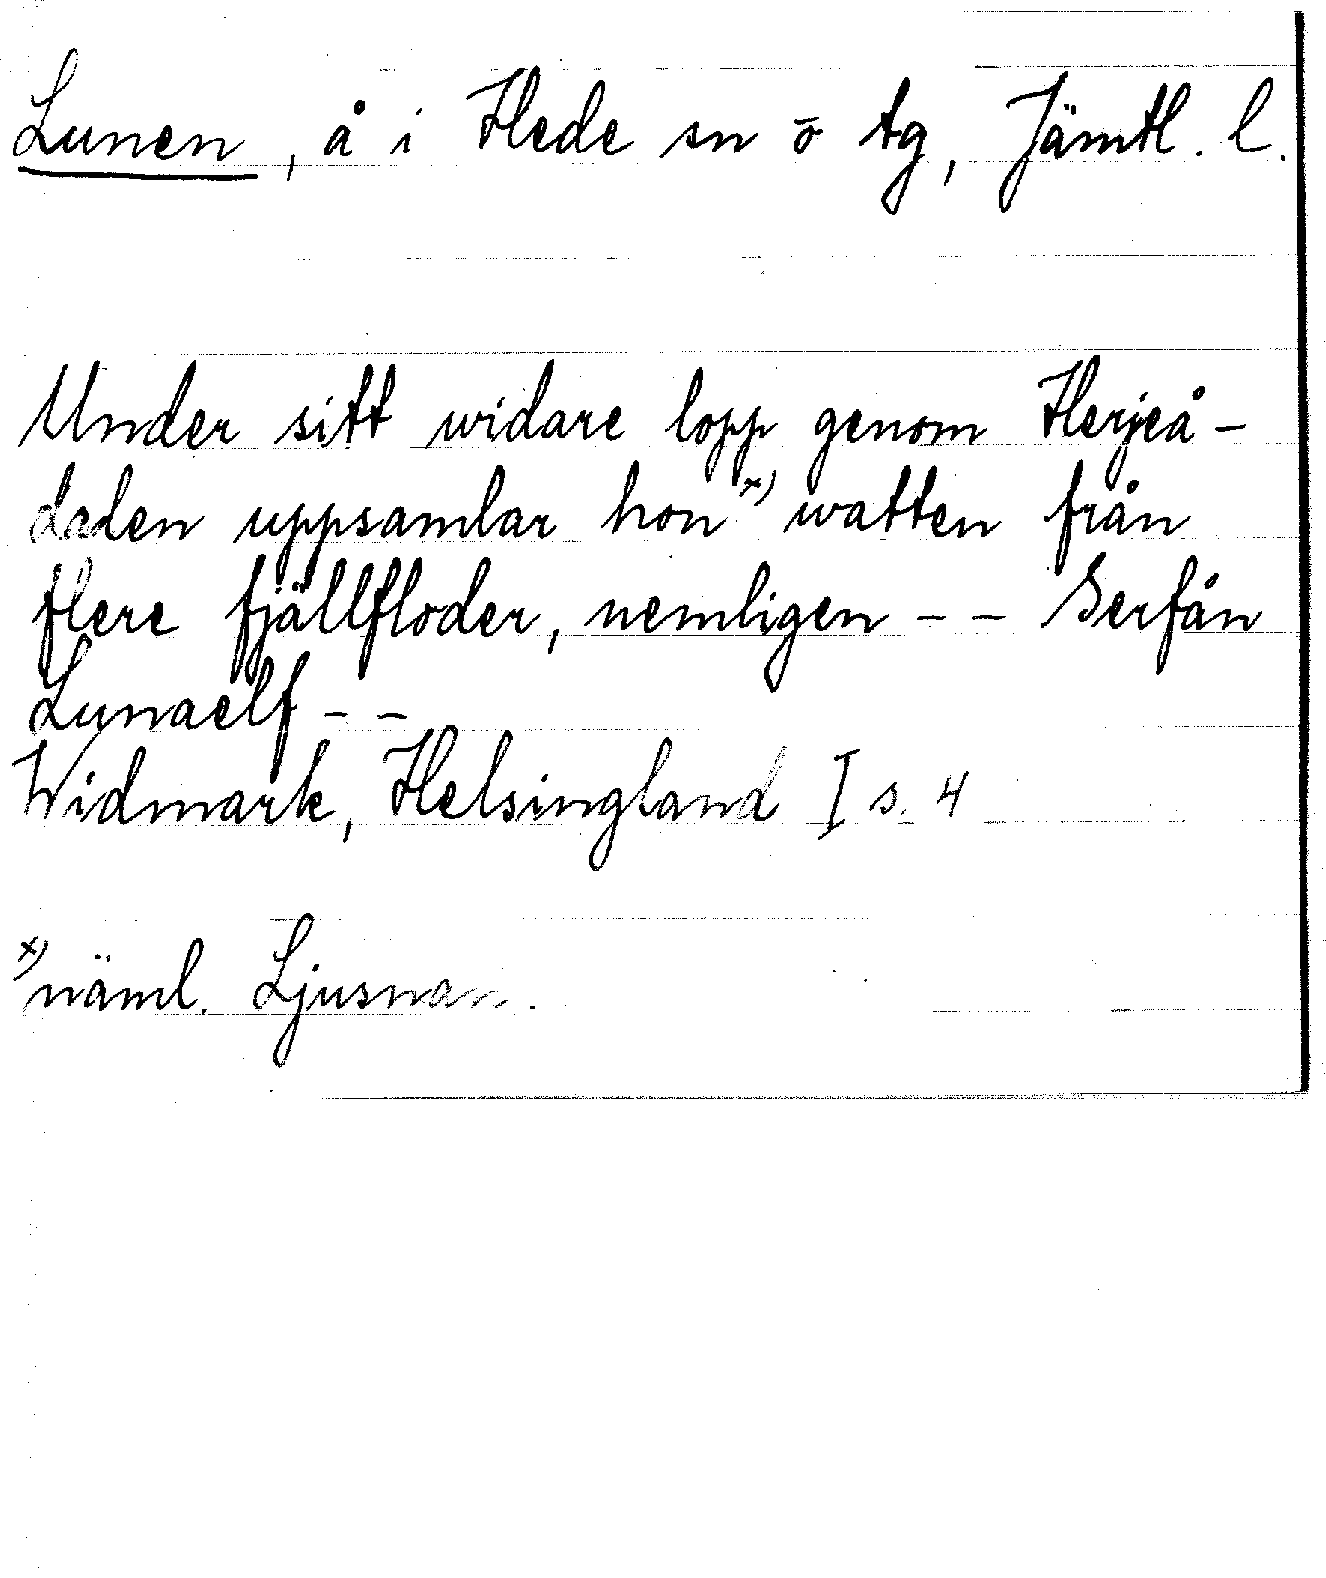 Lunen, å i Hede sn o tg, Jämtl. l.
Under sitt widare lopp genom Herjeå-
dalen uppsamlar hon x) watten från
flere fjällfloder, nemligen - - Serfån
Lunaelf - -
Widmark, Helsingland I s. 4
x) näml. Ljusnan.